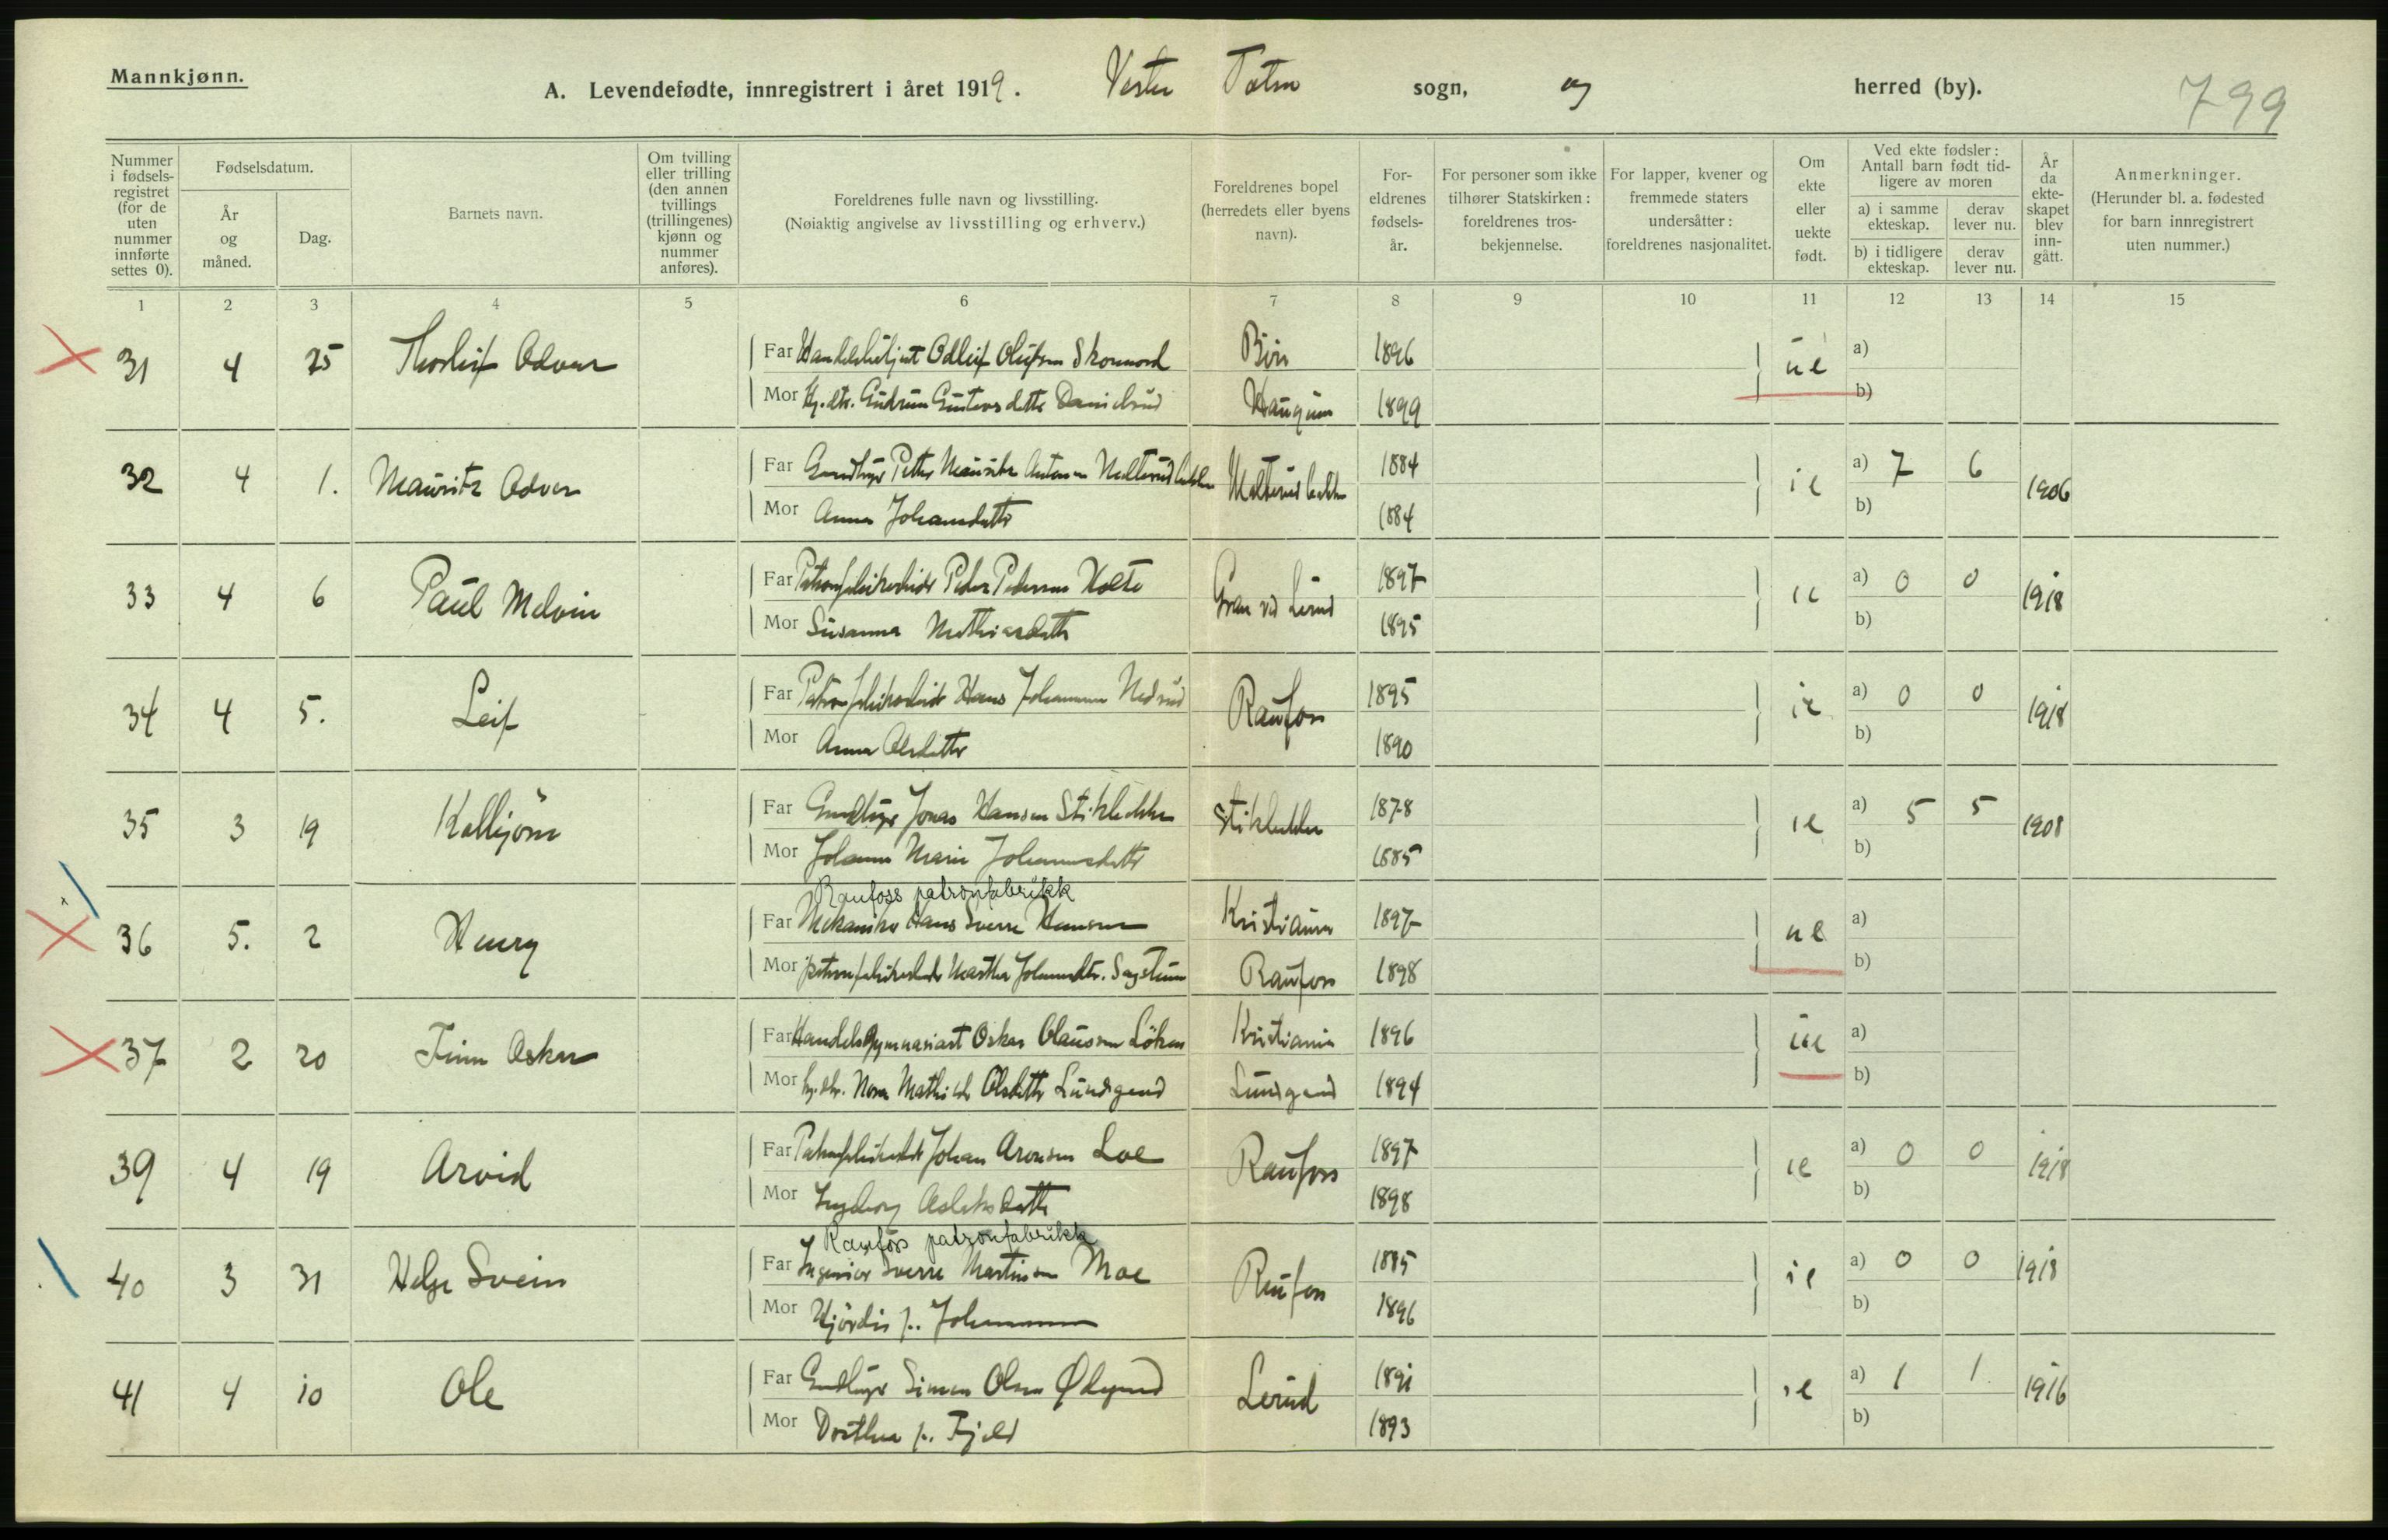 Mannkjønn.
A. Levendefødte, innregistrert i året 1919. Vester Toten sogn, og herred (by). 799
Nummer i fødsels-registret (for de uten nummer innførte settes 0).
Fødselsdatum.
År og måned.
Dag.
Barnets navn.
Om tvilling eller trilling (den annen tvillings (trillingenes) kjønn og nummer anføres).
Foreldrenes fulle navn og livsstilling.
(Nøiaktig angivelse av livsstilling og erhverv.)
Foreldrenes bopel (herredets eller byens navn).
For-eldrenes fødsels-år.
For personer som ikke tilhører Statskirken: foreldrenes tros-bekjennelse.
For lapper, kvener og fremmede staters undersåtter: foreldrenes nasjonalitet.
Om ekte eller uekte født.
Ved ekte fødsler: Antall barn født tid-ligere av moren
a) i samme ekteskap.
derav lever nu.
b) i tidligere ekteskap.
derav lever nu.
År da ekte-skapet blev inn-gått.
Anmerkninger.
(Herunder bl. a. fødested for barn innregistrert uten nummer.)
1 2 3 4 5 6 7 8 9 10 11 12 13 14 15
31 4 25 Thorleif Odvar Far Handelsbetjent Odleif Olufsen 1896 ue a)
Mor Gudrun Gustavsdatter Danielsrud Haugum 1899 b)
32 4 1. Mauritz Odvar Far Peter Mauritz Antonsen 1884 ie a) 7 6 1906
Mor Anna Johansdatter 1884 b)
33 4 6 Paul Melvin Far Patronfabrikarbeider Peder Pedersen Holte Gran vd Lerud 1897 ie a) 0 0 1918
Mor Susanna Mathiasdatter 1895 b)
34 4 5. Leif Far Patronfabrikarbeider Hans Johannessen Nedrud Raufoss 1895 ie a) 0 0 1918
Mor Anna Olsdatter 1890 b)
35 3 19 Kallbjørn Far Jonas Hansen Stikbakken Stikbakken 1878 ie a) 5 5 1908
Mor Johanne Marie Johannesdatter 1885 b)
Raufoss patronfabrikk
36 5. 2 Henry Far Mekaniker Hans Sverre Hansen Kristiania 1897 ue a)
Mor patronfabrikarbeider Martha Johansdtr. Sagstuen Raufoss 1898 b)
37 2 20 Finn Oskar Far Handelsgymnasiast Oskar Olaussen Løken Kristiania 1896 ue a)
Mor Nora Mathilde Olsdatter Lundsgaard Lundsgaard 1894 b)
39 4 19 Arvid Far Patronfabrikarbeider Johan Aronsen Loe Raufoss 1897 ie a) 0 0 1918
Mor Ingeborg Aslaksdatter 1898 b)
Raufoss patronfabrikk
40 3 31 Helge Svein Far Ingeniør Sverre Martinsen Moe Raufoss 1885 ie a) 0 0 1918
Mor Hjørdis f. Johannessen 1896 b)
41 4 10 Ole Far Simen Olsen Lerud 1891 ie a) 1 1 1916
Mor Dorthea f. Fjeld 1893 b)